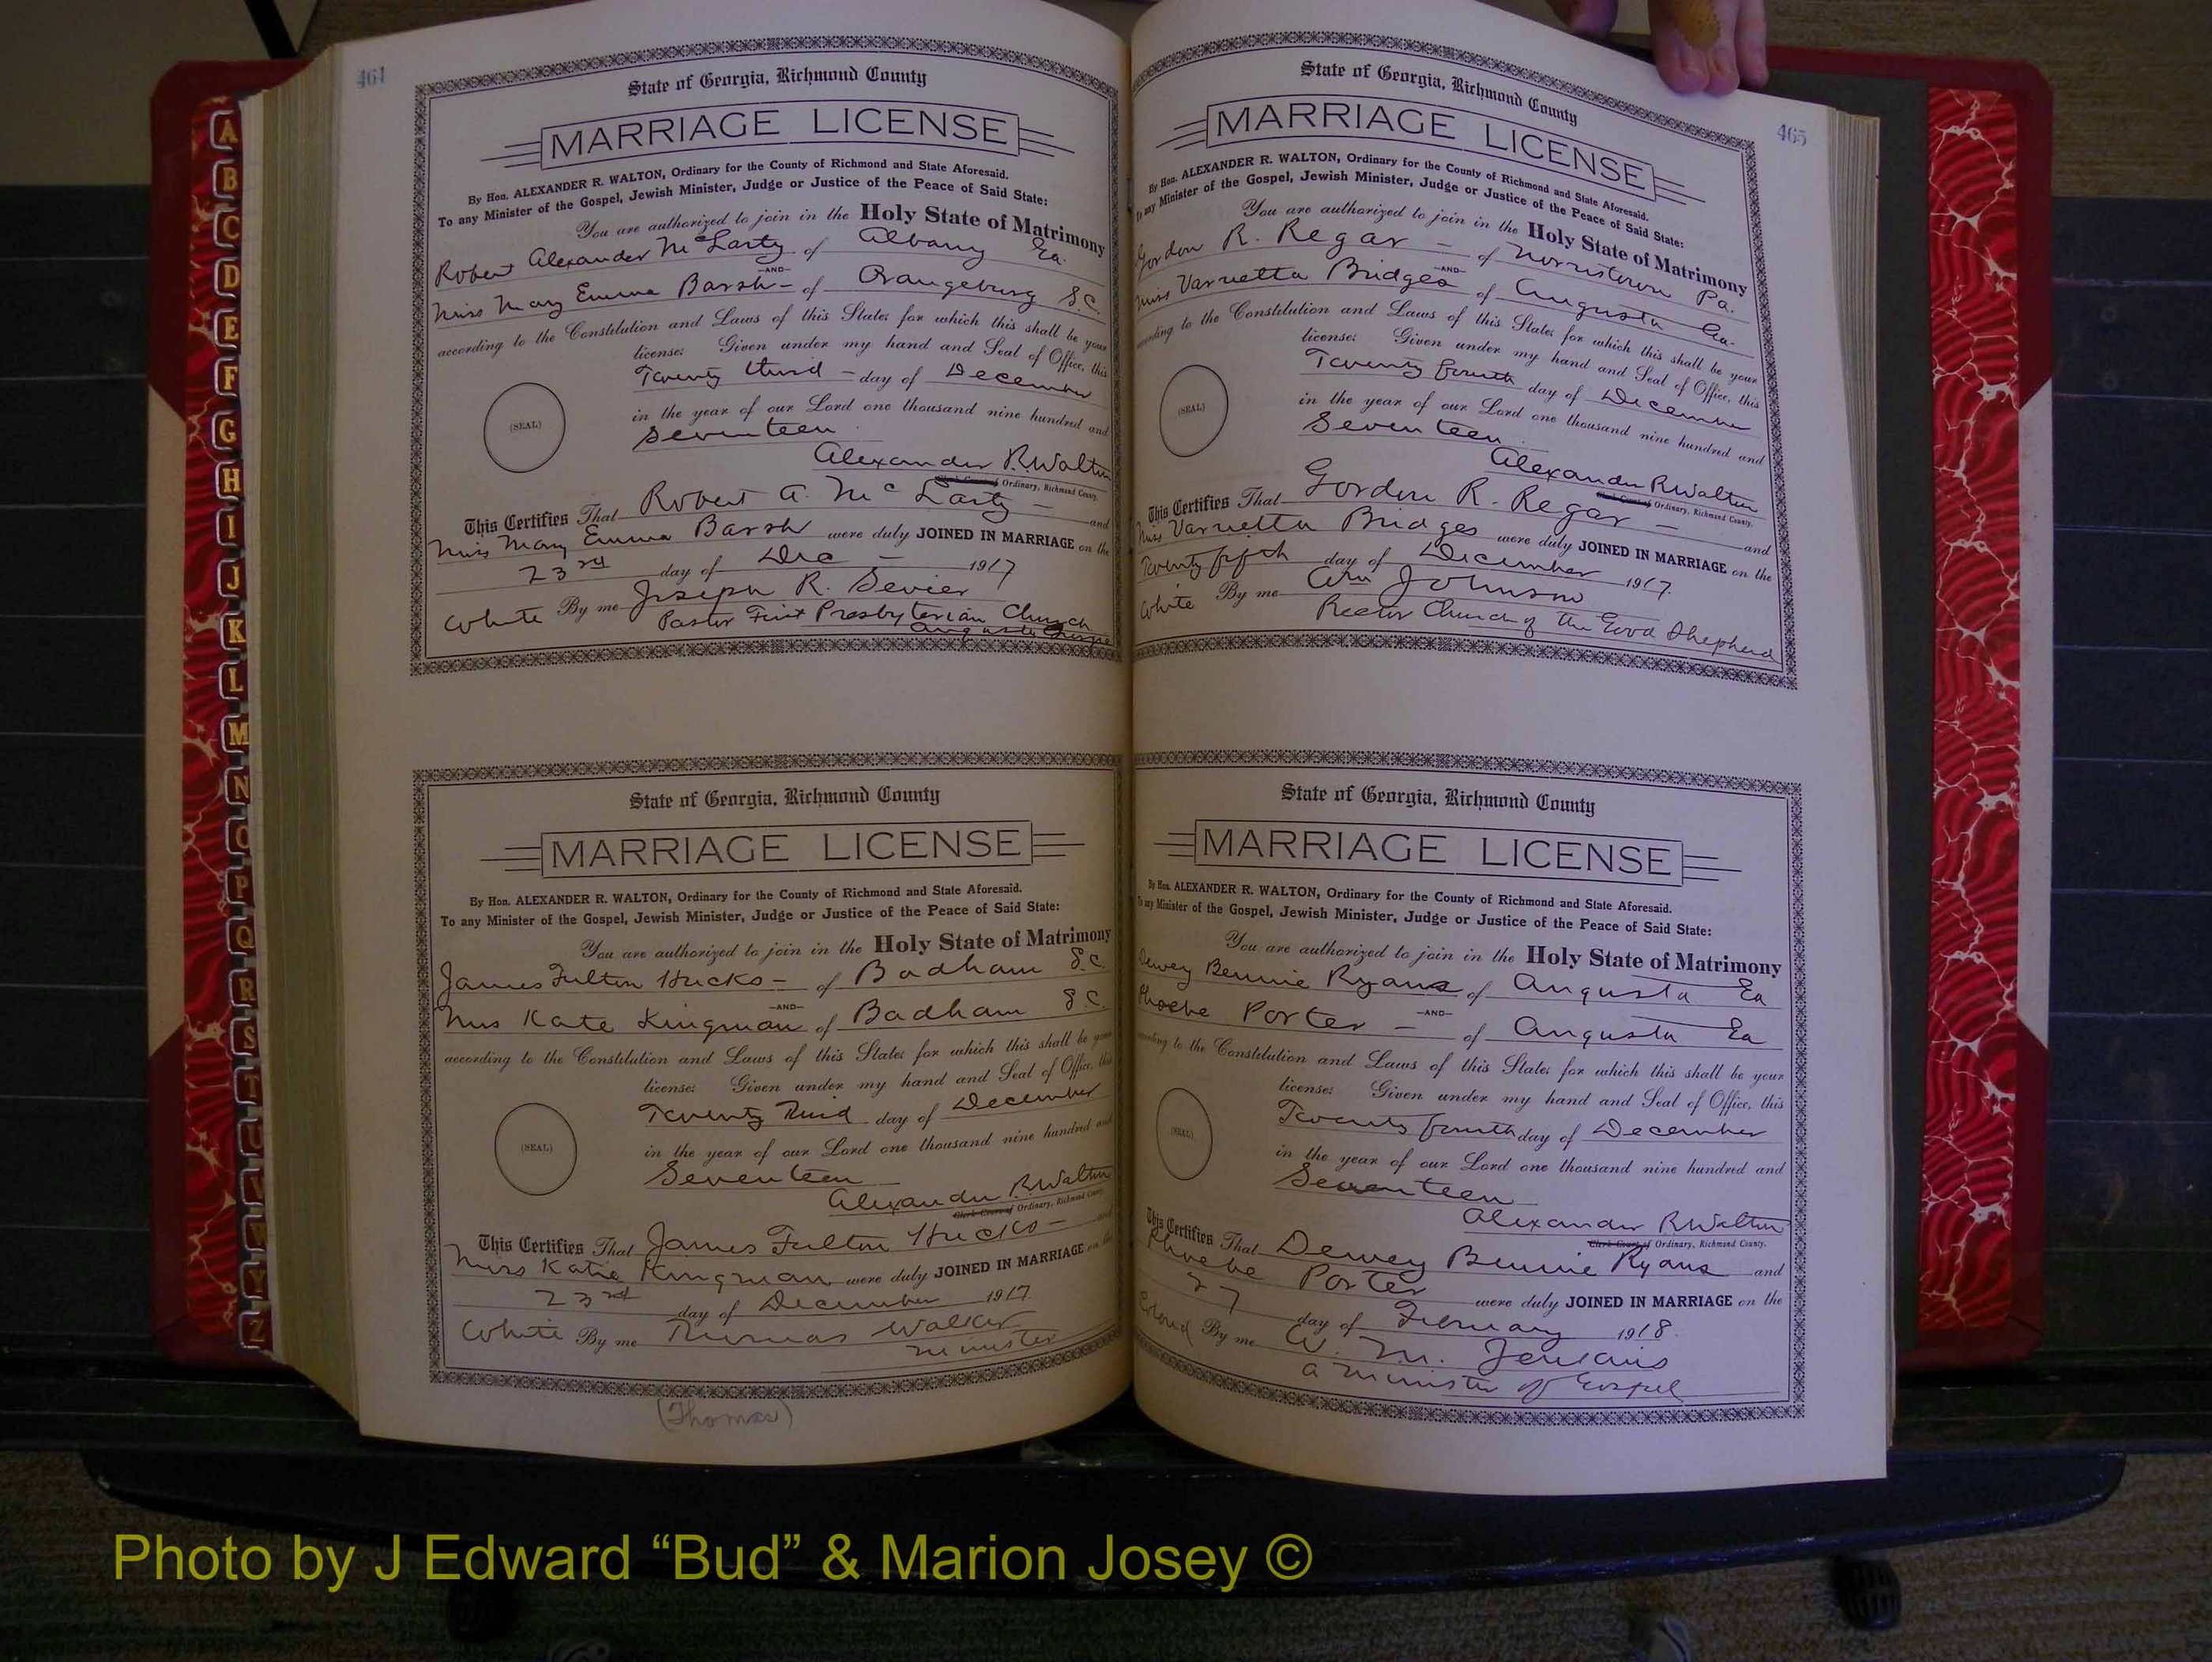 464
State of Georgia, Richmond County
MARRIAGE LICENSE
By Hon. ALEXANDER R. WALTON, Ordinary for the County of Richmond and State Aforesaid.
To any Minister of the Gospel, Jewish Minister, Judge or Justice of the Peace of Said State:
You are authorized to join in the Holy State of Matrimony
Robert Alexander McLarty of Albany Ga.
-AND-
Miss Mary Emma Barsh - of Orangeburg S.C.
according to the Constitution and Laws of this State; for which this shall be your
license: Given under my hand and Seal of Office, this
Twenty third - day of December
in the year of our Lord one thousand nine hundred and
Seventeen
(SEAL)
Alexander R. Walton
Clerk Court of Ordinary, Richmond County.
This Certifies That Robert A. McLarty - and
Miss Mary Emma Barsh were duly JOINED IN MARRIAGE on the
23rd day of Dec - 1917
White By me Joseph R. Sevier
Pastor First Presbyterian Church
Augusta
State of Georgia, Richmond County
MARRIAGE LICENSE
By Hon. ALEXANDER R. WALTON, Ordinary for the County of Richmond and State Aforesaid.
To any Minister of the Gospel, Jewish Minister, Judge or Justice of the Peace of Said State:
You are authorized to join in the Holy State of Matrimony
James Fulton Hucks - of Badham S.C.
-AND-
Miss Kate Kingman of Badham S.C.
according to the Constitution and Laws of this State; for which this shall be your
license: Given under my hand and Seal of Office, this
Twenty Third day of December
in the year of our Lord one thousand nine hundred and
Seventeen
(SEAL)
Alexander R. Walton
Clerk Court of Ordinary, Richmond County.
This Certifies That James Fulton Hucks - and
Miss Katie Kingman were duly JOINED IN MARRIAGE on the
23rd day of December 1917
White By me Thomas Walker
minister
(Thomas)
465
State of Georgia, Richmond County
MARRIAGE LICENSE
By Hon. ALEXANDER R. WALTON, Ordinary for the County of Richmond and State Aforesaid.
To any Minister of the Gospel, Jewish Minister, Judge or Justice of the Peace of Said State:
You are authorized to join in the Holy State of Matrimony
Gordon R. Regar - of Norristown Pa.
-AND-
Miss Varnetta Bridges of Augusta Ga.
according to the Constitution and Laws of this State; for which this shall be your
license: Given under my hand and Seal of Office, this
Twenty fourth day of December
in the year of our Lord one thousand nine hundred and
Seventeen
(SEAL)
Alexander R. Walton
Clerk Court of Ordinary, Richmond County.
This Certifies That Gordon R. Regar - and
Miss Varnetta Bridges were duly JOINED IN MARRIAGE on the
Twenty fifth day of December 1917.
White By me Johnson
Rector Church of the Good Shepherd
State of Georgia, Richmond County
MARRIAGE LICENSE
By Hon. ALEXANDER R. WALTON, Ordinary for the County of Richmond and State Aforesaid.
To any Minister of the Gospel, Jewish Minister, Judge or Justice of the Peace of Said State:
You are authorized to join in the Holy State of Matrimony
Dewey Bennie Ryans of Augusta Ga
-AND-
Phoebe Porter - of Augusta Ga
according to the Constitution and Laws of this State; for which this shall be your
license: Given under my hand and Seal of Office, this
Twenty fourth day of December
in the year of our Lord one thousand nine hundred and
Seventeen
(SEAL)
Alexander R. Walton
Clerk Court of Ordinary, Richmond County.
This Certifies That Dewey Bennie Ryans and
Phoebe Porter were duly JOINED IN MARRIAGE on the
27 day of February 1918.
Colored By me W. M. Jenkins
a minister of Gospel
A
B
C
D
E
F
G
H
I
J
K
L
M
N
O
P
Q
R
S
T
U
V
W
Y
Z
Photo by J Edward “Bud” & Marion Josey ©